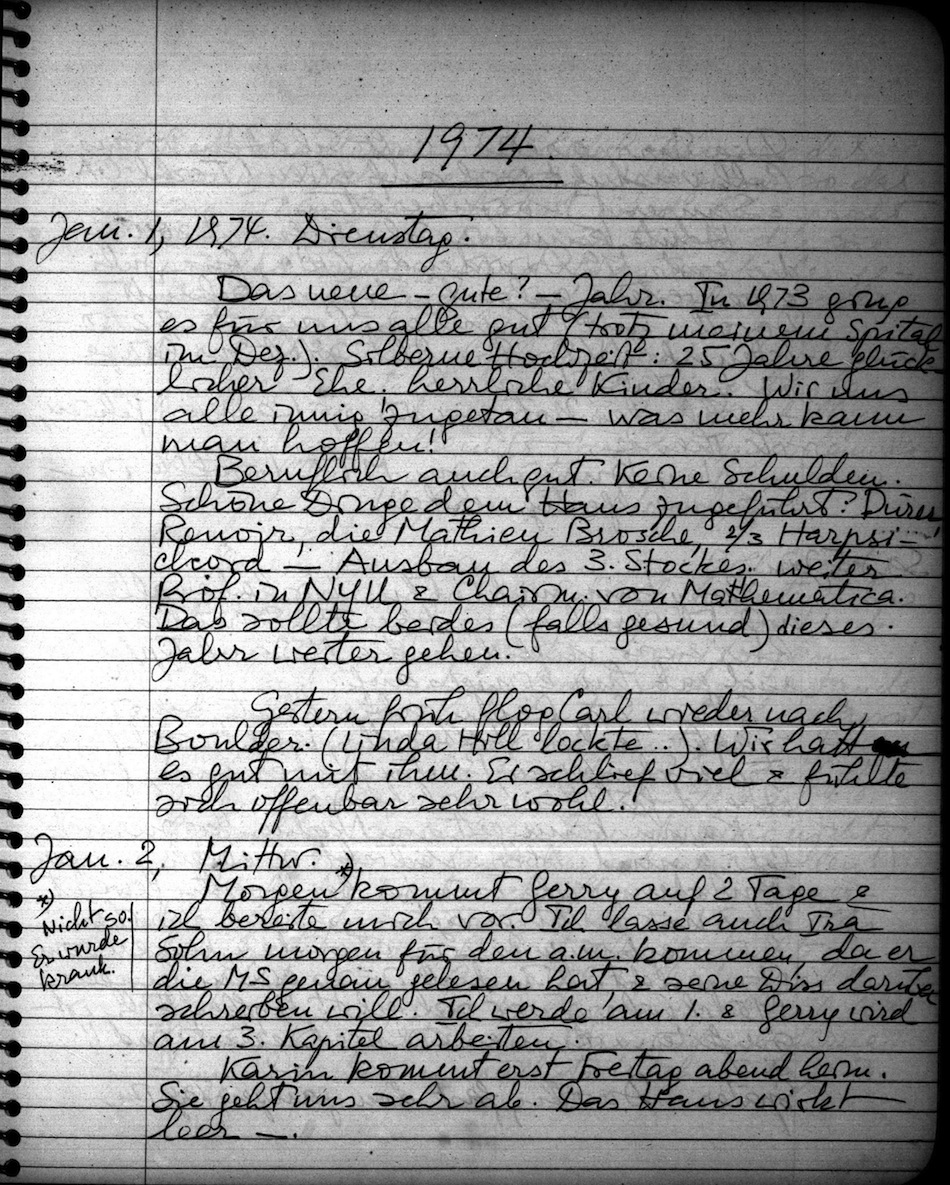 1974.
Jan. 1, 1974. Dienstag.
Das neue – gute? – Jahr. In 1973 ging
es für uns alle gut (trotz meinem Spital
im Dez.). Silberne Hochzeit: 25 Jahre glück-
licher Ehe, herrliche Kinder. Wir uns
alle innig zugetan – was mehr kann
man hoffen!
Beruflich auch gut. Keine Schulden.
Schöne Dinge dem Haus zugeführt: Dürer
Renoir, die Mathieu Brosche, 2/3 Harpsi-
chord – Ausbau des 3. Stockes. weiter
Prof. in NYU & Chairm. von Mathematica.
Das sollte beides (falls gesund) dieses
Jahr weiter gehen.
Gestern früh flog Carl wieder nach
Boulder. (Linda Hill lockte..). Wir hatten
es gut mit ihm. Er schlief viel & fühlte
sich offenbar sehr wohl.
Jan. 2, Mittw.
Morgen *) kommt Gerry auf 2 Tage &
ich bereite mich vor. Ich lasse auch Ira
Sohn morgen für den a.m. kommen, da er
die MS genau gelesen hat, & seine Diss darüber
schreiben will. Ich werde am 1. & Gerry wird
am 3. Kapitel arbeiten.
Karin kommt erst Freitag abend heim.
Sie geht uns sehr ab. Das Haus wirkt
leer –.
*)
Nicht so!
Er wurde
krank.